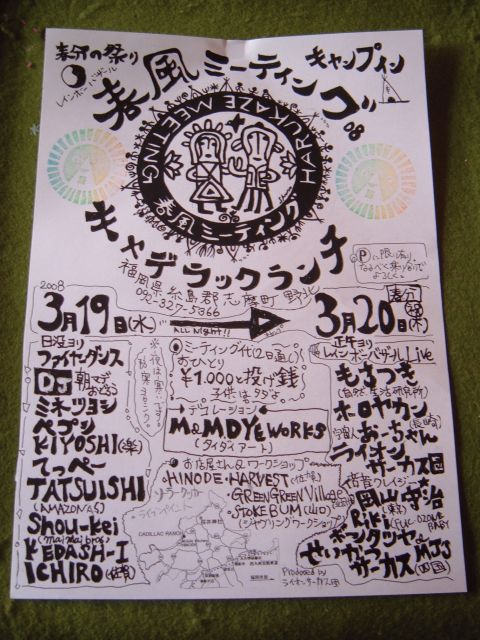 春分の祭り
レインボーバザール
春風ミーティング'08
キャンプイン
HARUKAZE MEETING
春風ミーティング
キャデラックランチ
福岡県糸島郡志摩町野北
092-327-5366
Ⓟに限り有り
なるべく乗り合いで
よろしく
2008
3月19日(水)
ALL Night!!
3月20日(木)
春分
日没ヨリ
ファイヤーダンス
DJ 朝までおどろう
ミネツヨシ
ペプシ
KIYOSHI(楽)
てっぺー
TATSUISHI
(AMAZONAS)
Shou-kei
(mai mai bros)
KEDASH-I
ICHIRO(佐賀)
ミーティング代(2日通し)
おひとり
¥1,000と投げ銭
子供はタダよ
デコレーション
M&M DYE WORKS
(タイダイアート)
お店屋さん&ワークショップ
HINODE・HARVEST(佐賀)
GREEN GREEN Village
STOKE BUM(山口)
(ジャグリングワークショップ)
ソーラークッカー
ライブペイント
CADILLAC RANCH
Produced by
ライオンサーカス団
正午ヨリ
レインボーバザール Live
もさつき
(自然生活研究所)
ホロヤカン
(長崎)
宇宙人 おーちゃん
ライオン
サーカス団
岡山守治
(東京)
Riki
キンタツヤ
せいかつ
サーカス
MJ's
(四国)